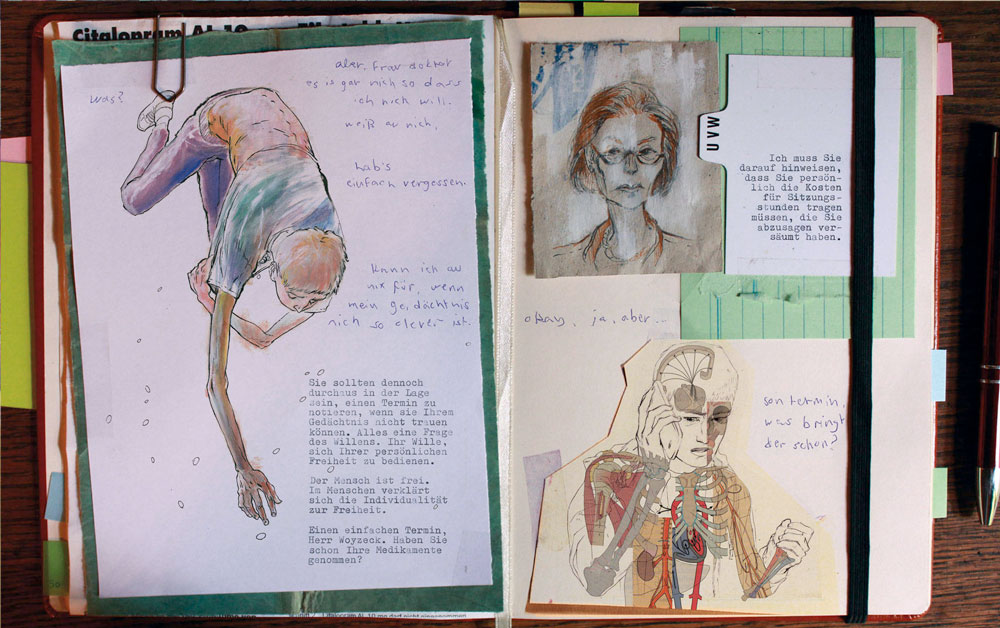 Citalopram AL 10
was?
aber, Frau doktor
es is gar nich so dass
ich nich will.
weiß au nich,
hab's
einfach vergessen.
kann ich au
nix für, wenn
mein gedächtnis
nich so clever ist.
Sie sollten dennoch
durchaus in der Lage
sein, einen Termin zu
notieren, wenn sie Ihrem
Gedächtnis nicht trauen
können. Alles eine Frage
des Willens. Ihr Wille,
sich Ihrer persönlichen
Freiheit zu bedienen.
Der Mensch ist frei.
Im Menschen verklärt
sich die Individualität
zur Freiheit.
Einen einfachen Termin,
Herr Woyzeck. Haben Sie
schon Ihre Medikamente
genommen?
UVW
Ich muss Sie
darauf hinweisen,
dass Sie persön-
lich die Kosten
für Sitzungs-
stunden tragen
müssen, die Sie
abzusagen ver-
säumt haben.
okay, ja, aber...
son termin.
was bringt
der schon?